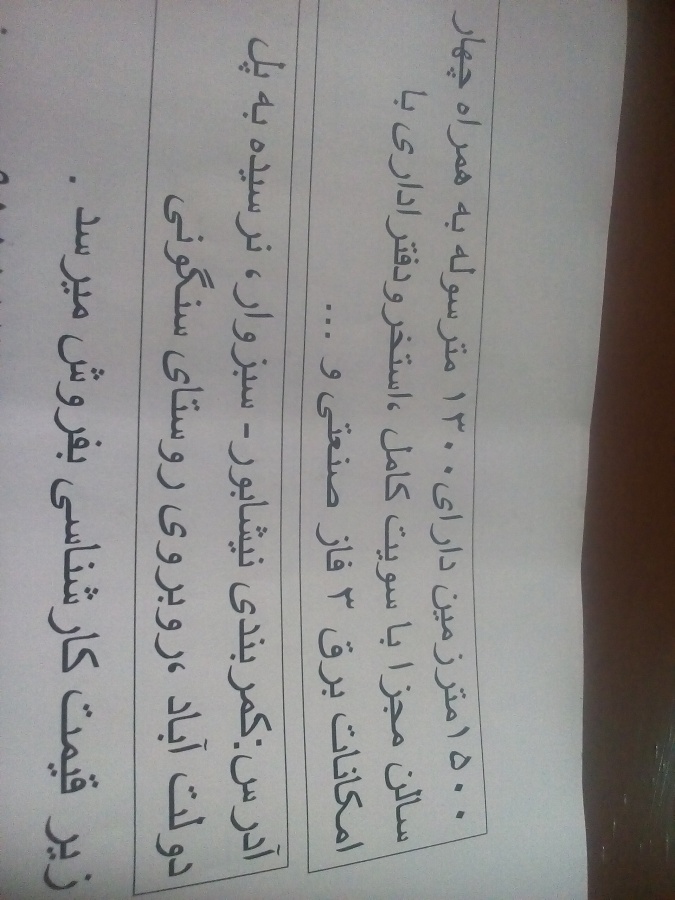 ۱۵۰۰متر زمین دارای ۱۳۰۰ متر سوله به همراه چهار
سالن مجزا با سویت کامل ،استخر ودفتر اداری با
امکانات برق ۳ فاز صنعتی و ...
آدرس:کمر بندی نیشابور- سبزوار، نرسیده به پل
دولت آباد ،روبروی روستای سنگونی
زیر قیمت کارشناسی بفروش میرسد .